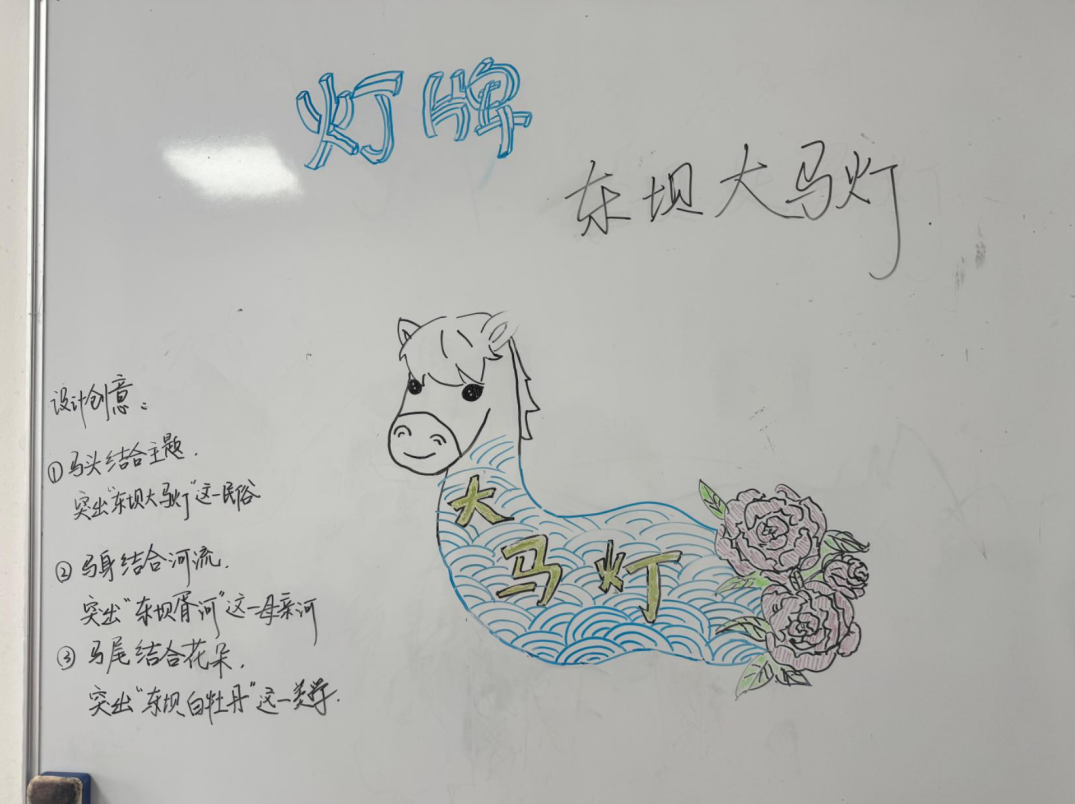 灯牌
东坝大马灯
设计创意：
①马头结合主题．
突出"东坝大马灯"这一民俗
②马身结合河流．
突出"东坝胥河"这一母亲河
③马尾结合花朵．
突出"东坝白牡丹"这一美学．
大
马灯